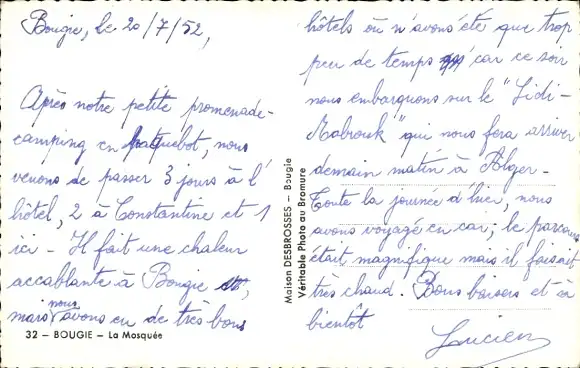 Bougie, le 20/7/52,
Après notre petite promenade-
camping en paquebot, nous
venons de passer 3 jours à l'
hôtel, 2 à Constantine et 1
ici - Il fait une chaleur
accablante à Bougie,
mais nous avons eu de très bons
32 - BOUGIE - La Mosquée
Maison DESBROSSES - Bougie
Véritable Photo au Bromure
hôtels où n'avons été que trop
peu de temps car ce soir
nous embarquons sur le "Sidi-
Mabrouk" qui nous fera arriver
demain matin à Alger -
Toute la journée d'hier, nous
avons voyagé en car; le parcours
était magnifique mais il faisait
très chaud. Bons baisers et à
bientôt
Lucien